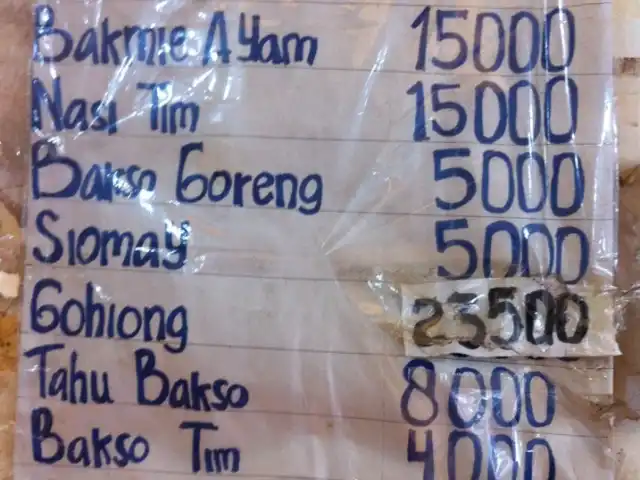 Bakmie Ayam 15000
Nasi Tim 15000
Bakso Goreng 5000
Siomay 5000
Gohiong 23500
Tahu Bakso 8000
Bakso Tim 4000